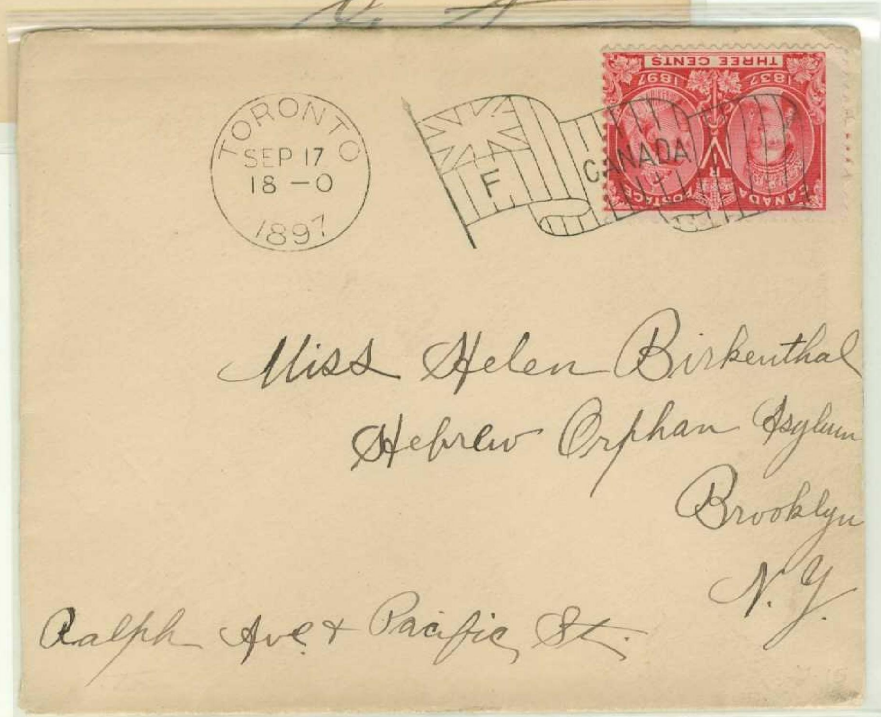 TORONTO
SEP 17
18-0
1897
F
CANADA
THREE CENTS
1837
1897
VR
CANADA
POSTAGE
Miss Helen Birkenthal
Hebrew Orphan Asylum
Brooklyn
N.Y.
Ralph Ave. & Pacific St.